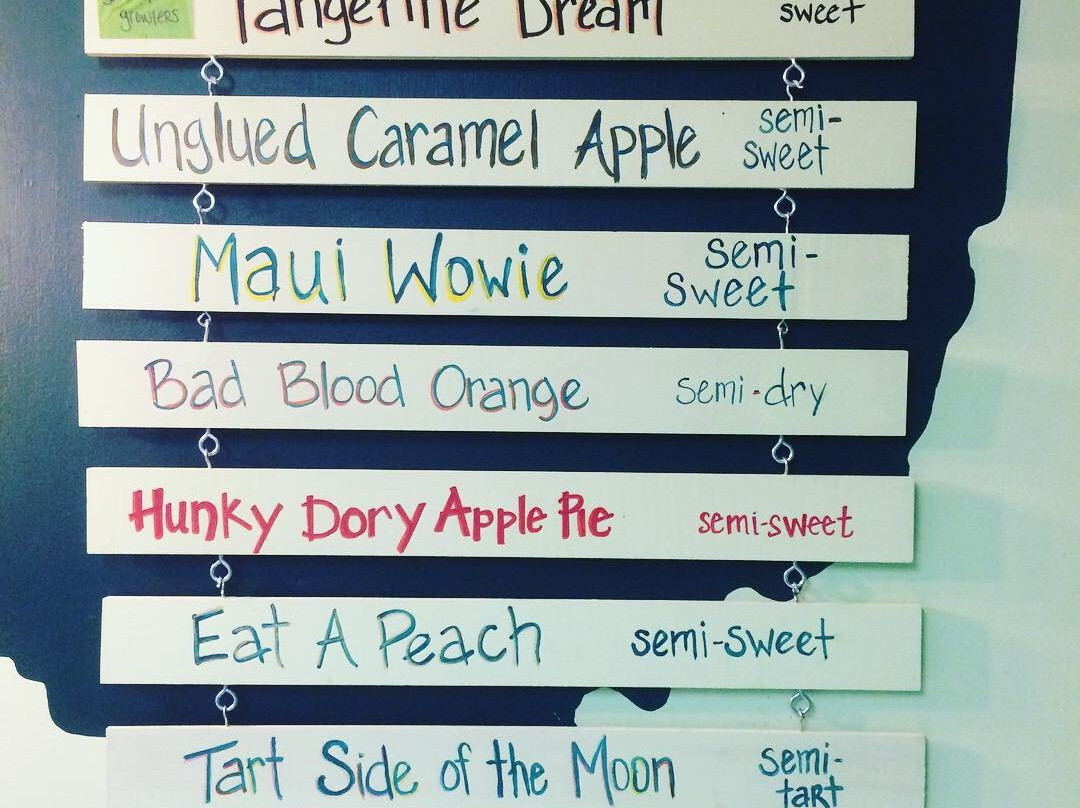 growlers
Tangerine Dream sweet
Unglued Caramel Apple semi-
sweet
Maui Wowie semi-
sweet
Bad Blood Orange semi-dry
Hunky Dory Apple Pie semi-sweet
Eat A Peach semi-sweet
Tart Side of the Moon semi-
tart